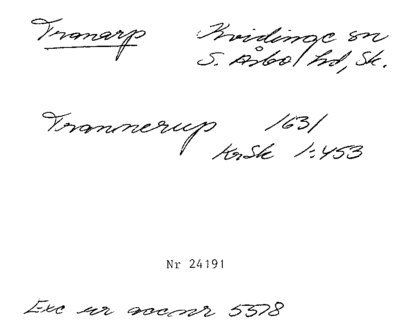 Tranarp Kvidinge sn
S. Åsbo hd, Sk.
Trannerup 1631
KrSk 1:453
Nr 24191
Exc ur accnr 5578